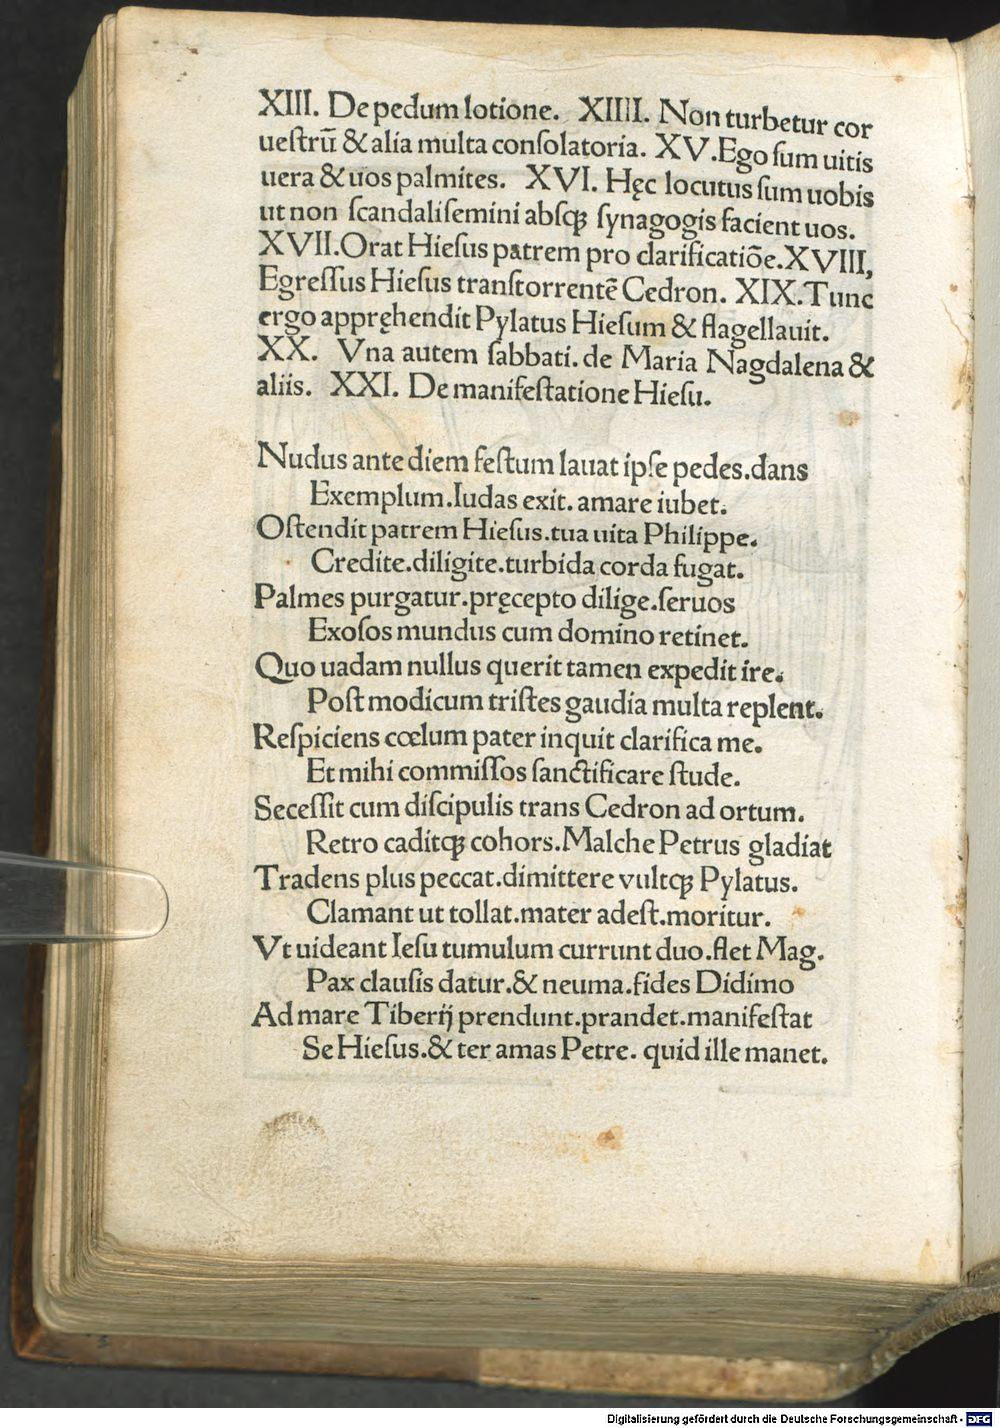 XIII. De pedum lotione. XIIII. Non turbetur cor
ueſtrū & alia multa conſolatoria. XV. Ego ſum uitis
uera & uos palmites. XVI. Hęc locutus ſum uobis
ut non ſcandaliſemini abſqꝫ ſynagogis facient uos.
XVII. Orat Hieſus patrem pro clarificatiōe. XVIII,
Egreſſus Hieſus tranſtorrentē Cedron. XIX. Tunc
ergo appręhendit Pylatus Hieſum & flagellauit.
XX. Vna autem ſabbati. de Maria Nagdalena &
aliis. XXI. De manifeſtatione Hieſu.
Nudus ante diem feſtum lauat ipſe pedes. dans
Exemplum. Iudas exit. amare iubet.
Oſtendit patrem Hieſus. tua uita Philippe.
Credite. diligite. turbida corda fugat.
Palmes purgatur. pręcepto dilige. ſeruos
Exoſos mundus cum domino retinet.
Quo uadam nullus querit tamen expedit ire.
Poſt modicum triſtes gaudia multa replent.
Reſpiciens cœlum pater inquit clarifica me.
Et mihi commiſſos ſanctificare ſtude.
Seceſſit cum diſcipulis trans Cedron ad ortum.
Retro caditqꝫ cohors. Malche Petrus gladiat
Tradens plus peccat. dimittere vultqꝫ Pylatus.
Clamant ut tollat. mater adeſt. moritur.
Vt uideant Ieſu tumulum currunt duo. flet Mag.
Pax clauſis datur. & neuma. fides Didimo
Ad mare Tiberij prendunt. prandet. manifeſtat
Se Hieſus. & ter amas Petre. quid ille manet.
Digitalisierung gefördert durch die Deutsche Forschungsgemeinschaft - DFG